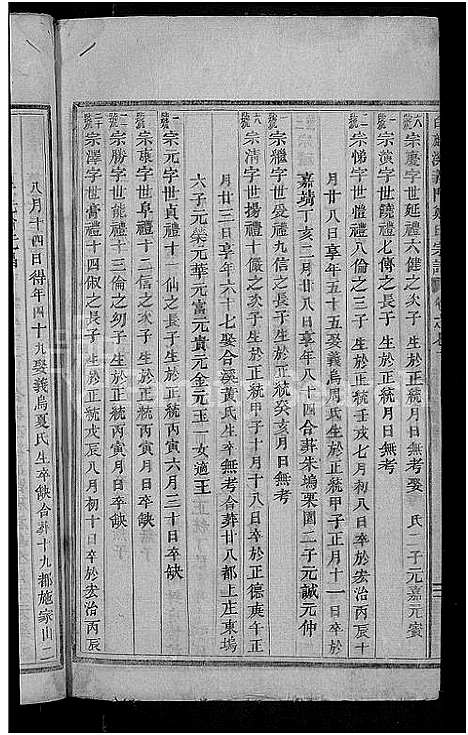 宗慶字世延禮六健之次子生於正統月日無考娶 氏二子元嘉元賓
宗演字世饒禮七傳之長子生於正統月日無考
宗悌字世體禮八倫之三子生於正統壬戌七月初八日卒於宏治丙辰十
月廿八日享年五十五娶義烏周氏生於正統甲子正月十一日卒於
嘉靖丁亥二月廿八日享年八十四合葬朱塢栗園二子元誠元仲
宗繼字世愛禮九信之長子生於正統癸亥月日無考
宗清字世揚禮十儼之次子生於正統甲子十月十八日卒於正德庚午正
月廿三日享年六十七娶合溪黃氏生卒無考合葬廿八都上庄東塢
六子元榮元華元富元貴元金元玉一女適王
宗元字世貞禮十一仙之長子生於正統丙寅六月三十日卒缺
宗康字世阜禮十二信之次子生於正統丙寅月日卒缺
宗勝字世能禮十三倫之幼子生於正統丙寅月日卒缺
宗澤字世膏禮十四俶之長子生於正統戊辰八月初十日卒於宏治丙辰
八月十四日得年四十九娶義烏夏氏生卒缺合葬十九都施家山二